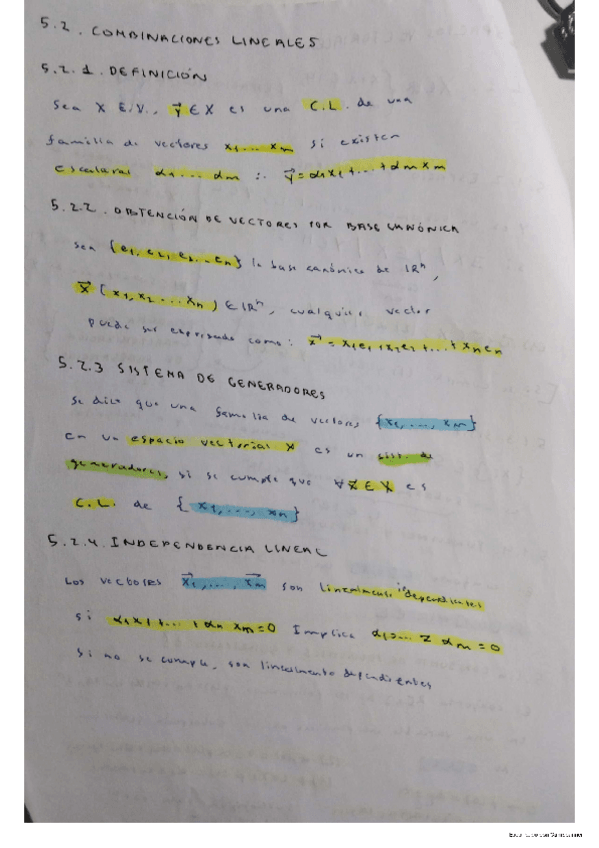 5.2. COMBINACIONES LINEALES
5.2.1. DEFINICIÓN
Sea X E.V., y⃗ ∈ X es una C.L. de una
familia de vectores x₁... xₘ si existen
escalares α₁.... αₘ ∴ y⃗ = α₁x₁+...+αₘxₘ
5.2.2. OBTENCIÓN DE VECTORES POR BASE CANÓNICA
sea {e₁, e₂, e₃...eₙ} la base canónica de ℝⁿ,
x⃗ (x₁, x₂ ... xₙ) ∈ ℝⁿ, cualquier vector
puede ser expresado como: x⃗ = x₁e₁+x₂e₂+...+xₙeₙ
5.2.3 SISTEMA DE GENERADORES
se dice que una familia de vectores {x₁, ..., xₘ}
en un espacio vectorial X es un sist. de
generadores, si se cumple que ∀x⃗ ∈ X es
C.L. de {x₁, ..., xₙ}
5.2.4. INDEPENDENCIA LINEAL
Los vectores x⃗₁, ..., x⃗ₘ son linealmente independientes
si α₁x₁+...+αₙxₘ=0 Implica α₁=... = αₘ=0
si no se cumple, son linealmente dependientes